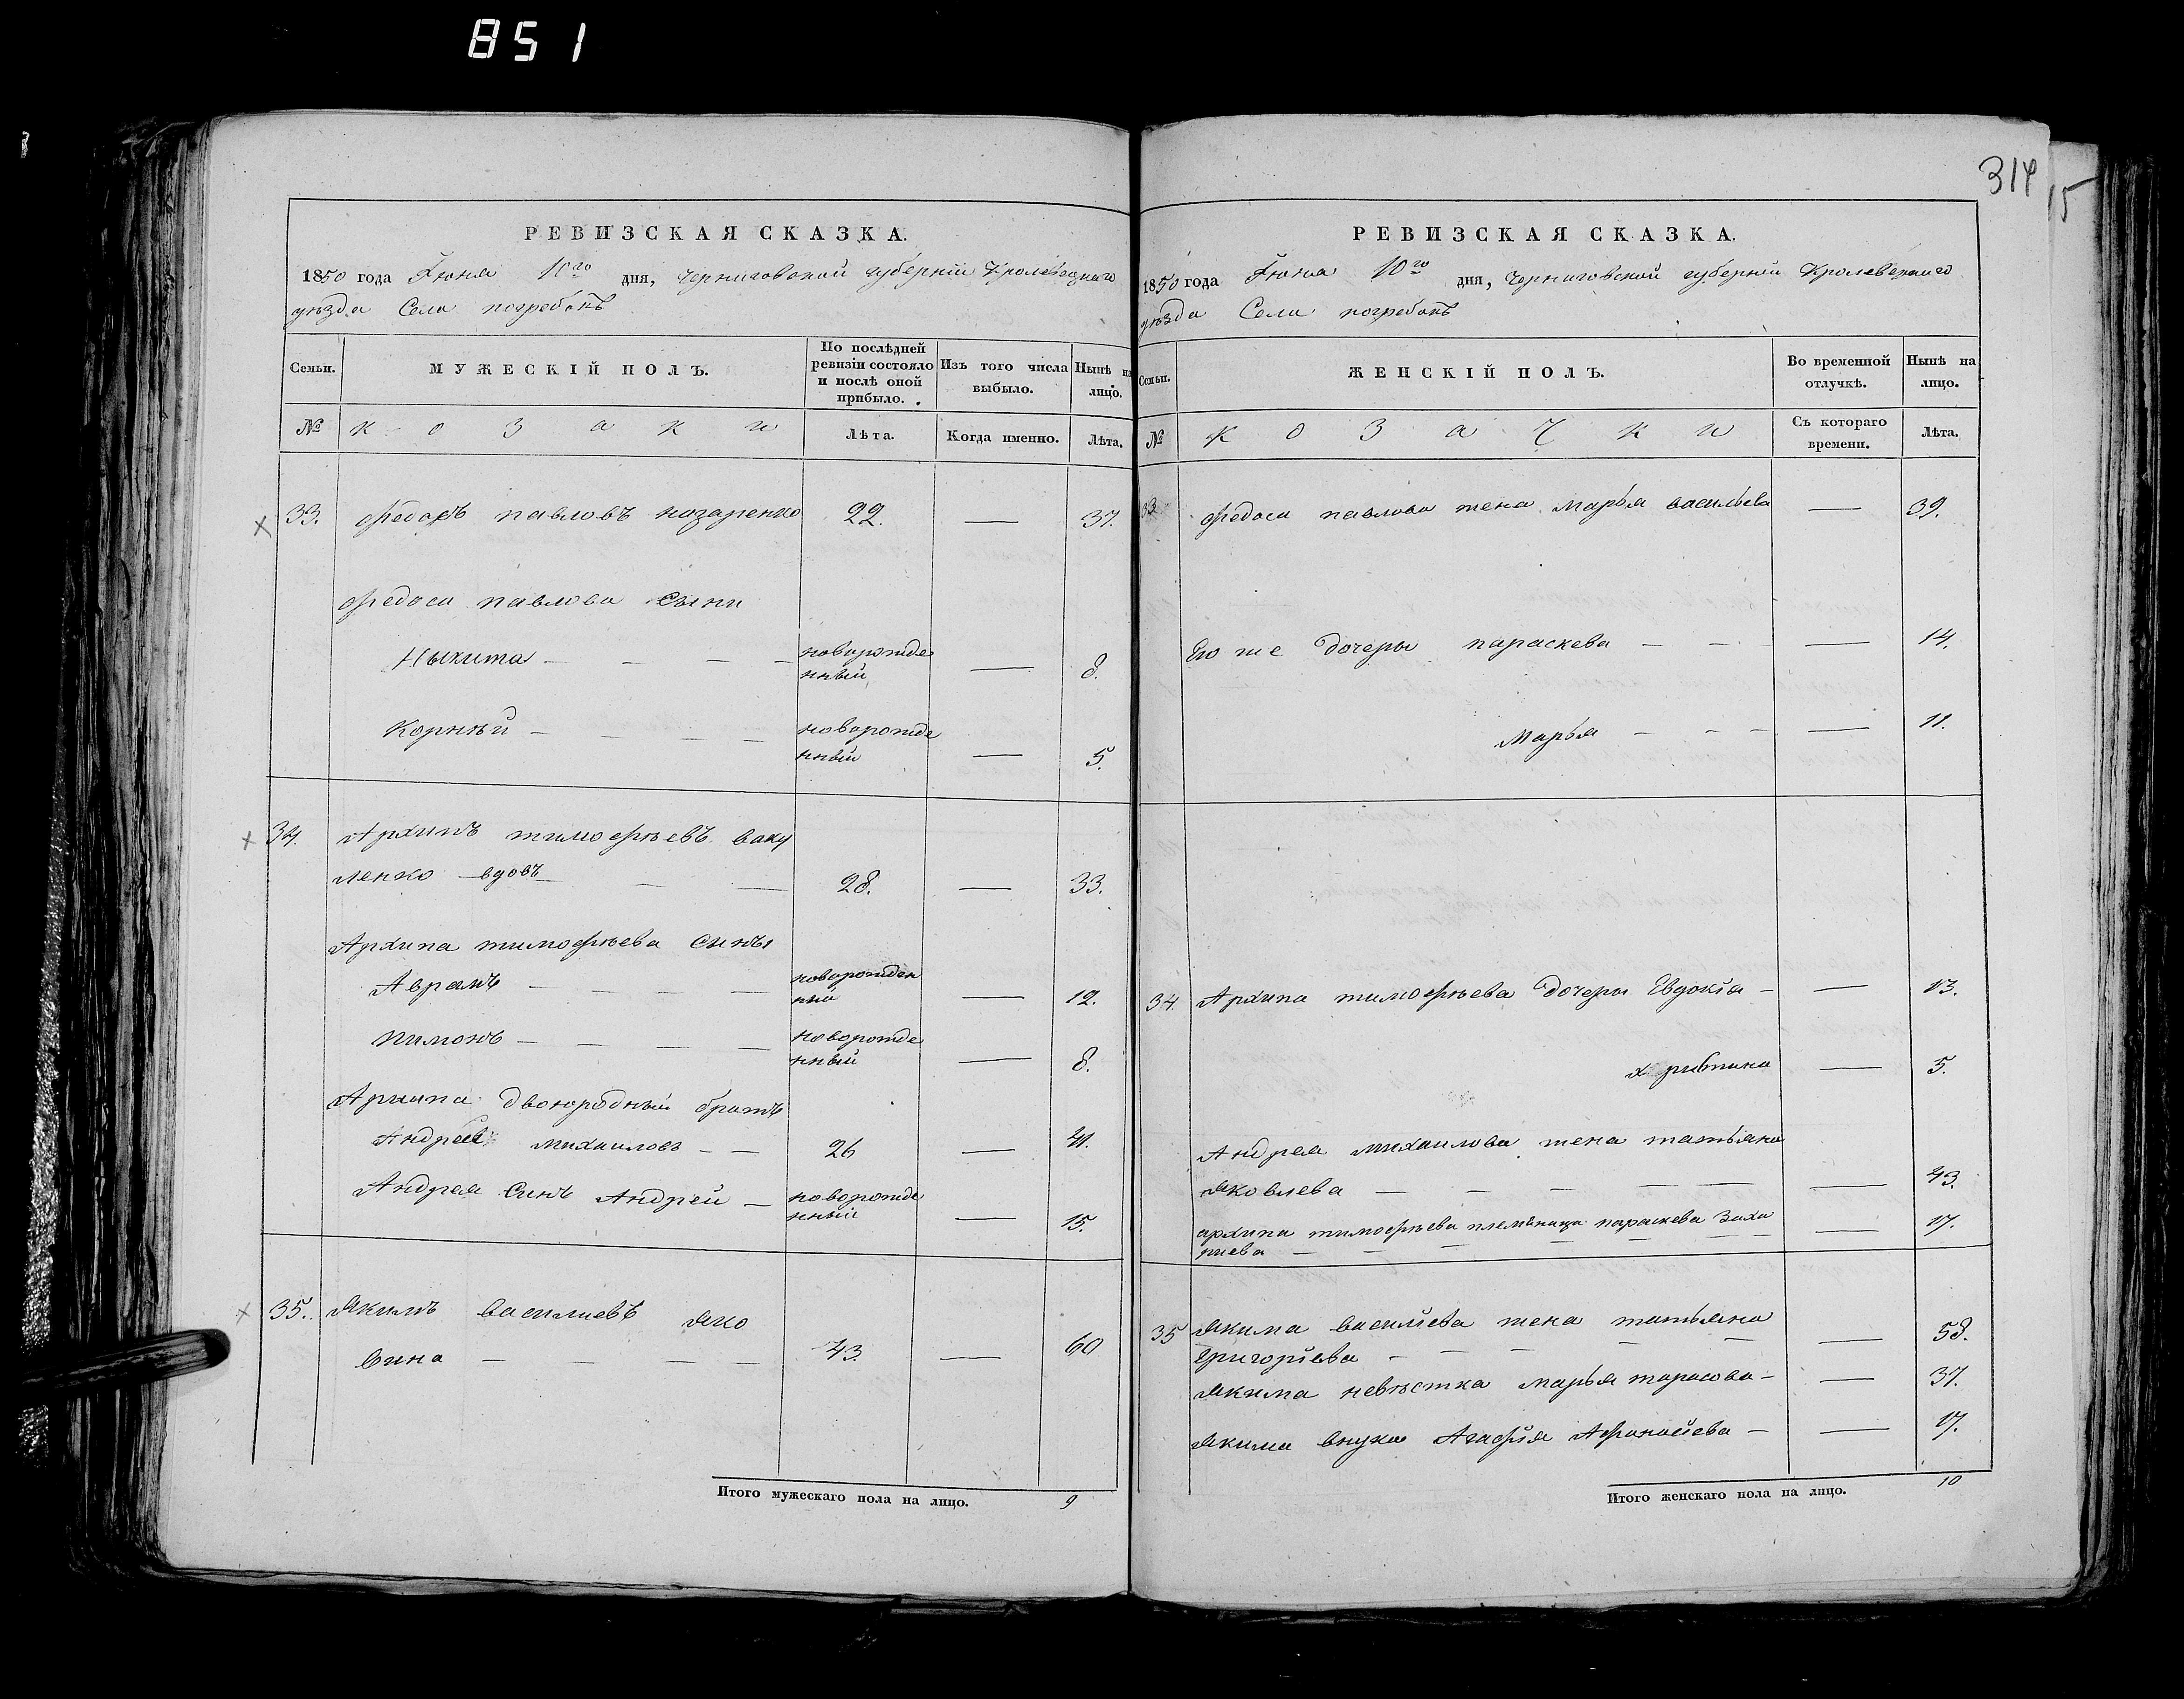 851
314
15
РЕВИЗСКАЯ СКАЗКА.
1850 года Іюня 10го дня, Черниговской губерніи Кролевецкаго
уѣзда Села погребокъ
Семьи.
МУЖЕСКІЙ ПОЛЪ.
По послѣдней
ревизіи состояло
и послѣ оной
прибыло.
Изъ того числа
выбыло.
Нынѣ на
лицо.
№
козаки
Лѣта.
Когда именно.
Лѣта.
33. павловъ назаренко 22. — 37.
Федоса павлова сыни
Ныкита — — — — новорожде
нный — 8.
Корнѣй — — — — новорожде
нный — 5.
34. Архипъ тимофѣевъ ваку
ленко вдовъ — — 28. — 33.
Архипа тимофѣева сины
Аврамъ — — — — новорожден
ный — 12.
Пимонъ — — — — новорожде
нный — 8.
Архипа двоюродный братъ
Андрей михаиловъ — — 26 — 41.
Андрея Синъ Андрей — новорожде
нный — 15.
35. Якимъ василиевъ Яко
вина — — — — 43. — 60
Итого мужескаго пола на лицо. 9
РЕВИЗСКАЯ СКАЗКА.
1850 года Іюня 10го дня, Черниговской губерніи Кролевецкаго
уѣзда Села погребокъ
Семьи.
ЖЕНСКІЙ ПОЛЪ.
Во временной
отлучкѣ.
Нынѣ на
лицо.
№
козачки
Съ котораго
времени.
Лѣта.
33 Федоса павлова жена Марья васильева — 39.
Его же дочеры параскева — — — 14.
Марья — — — — 11.
34. Архипа тимофѣева дочеры Евдокіа — — 13.
— 5.
Андрея михаилова жена татьяна
Яковлева — — — — — — 43.
архипа тимофѣева племѣница параскева Заха
риева — — — — — — — — 17.
35 Якима василіева жена татьяна
Григоріева — — — — — — 58.
Якима невѣстка марья тарасова — — 37.
Якима внука Агафія Афонасіева — — 17.
Итого женскаго пола на лицо. 10